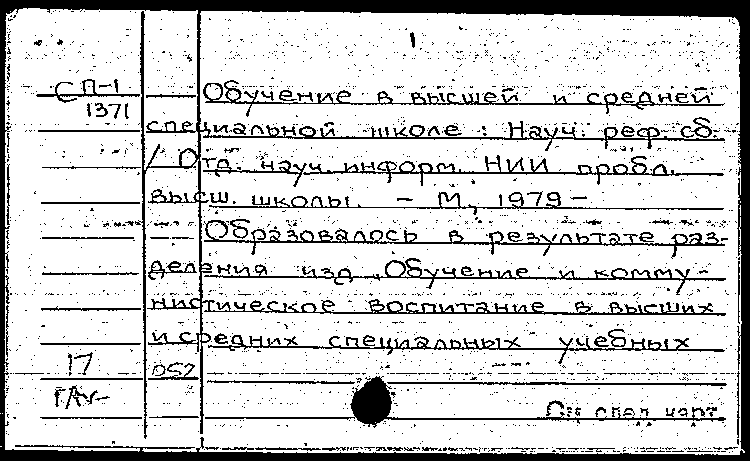 1
СП-1 Обучение в высшей и средней
1371
специальной школе : Науч. реф. сб.
/ Отд. науч. информ. НИИ пробл.
высш. школы. - М., 1979 -
Образовалось в результате раз-
деления изд. „Обучение и комму-
нистическое воспитание в высших
и средних специальных учебных
17
См след. карт.